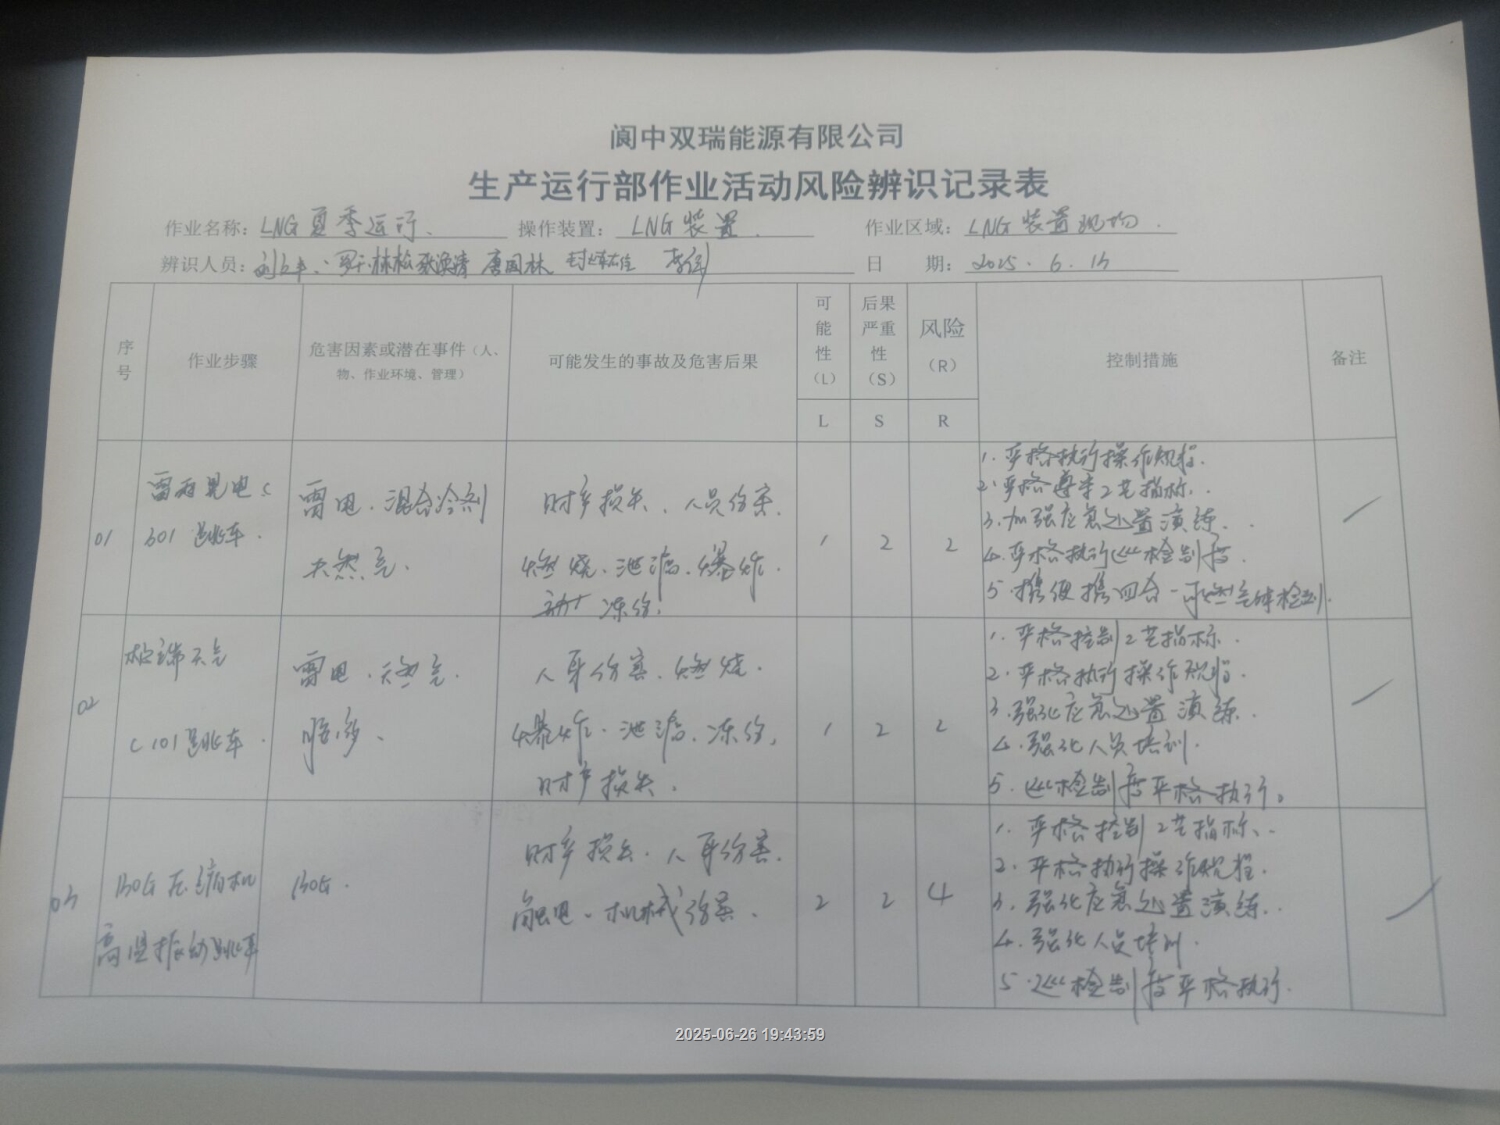 阆中双瑞能源有限公司
生产运行部作业活动风险辨识记录表
作业名称：LNG夏季运行． 操作装置：LNG装置． 作业区域：LNG装置现场．
辨识人员： 唐国林 日 期：2025．6．
序号 作业步骤 危害因素或潜在事件（人、物、作业环境、管理） 可能发生的事故及危害后果 可能性（L） 后果严重性（S） 风险（R） 控制措施 备注
L S R
01 雷雨晃电C301跳车． 雷电．混合冷剂 天然气． 财产损失．人员伤害． 燃烧．泄漏．爆炸． 冻伤． 1 2 2
1．严格执行操作规程．
2．严格遵守工艺指标．
3．加强应急处置演练．
4．严格执行巡检制度．
5．携便携四合一可燃气体检测
02 极端天气 C101跳车． 雷电．天然气． 人身伤害．燃烧． 爆炸．泄漏．冻伤， 财产损失． 1 2 2
1．严格控制工艺指标．
2．严格执行操作规程．
3．强化应急处置演练．
4．强化人员培训．
5．巡检制度严格执行。
03 BOG压缩机 高温振动跳车 BOG． 财产损失．人身伤害． 触电．机械伤害． 2 2 4
1．严格控制工艺指标．
2．严格执行操作规程．
3．强化应急处置演练．
4．强化人员培训．
5．巡检制度严格执行．
2025-06-26 19:43:59